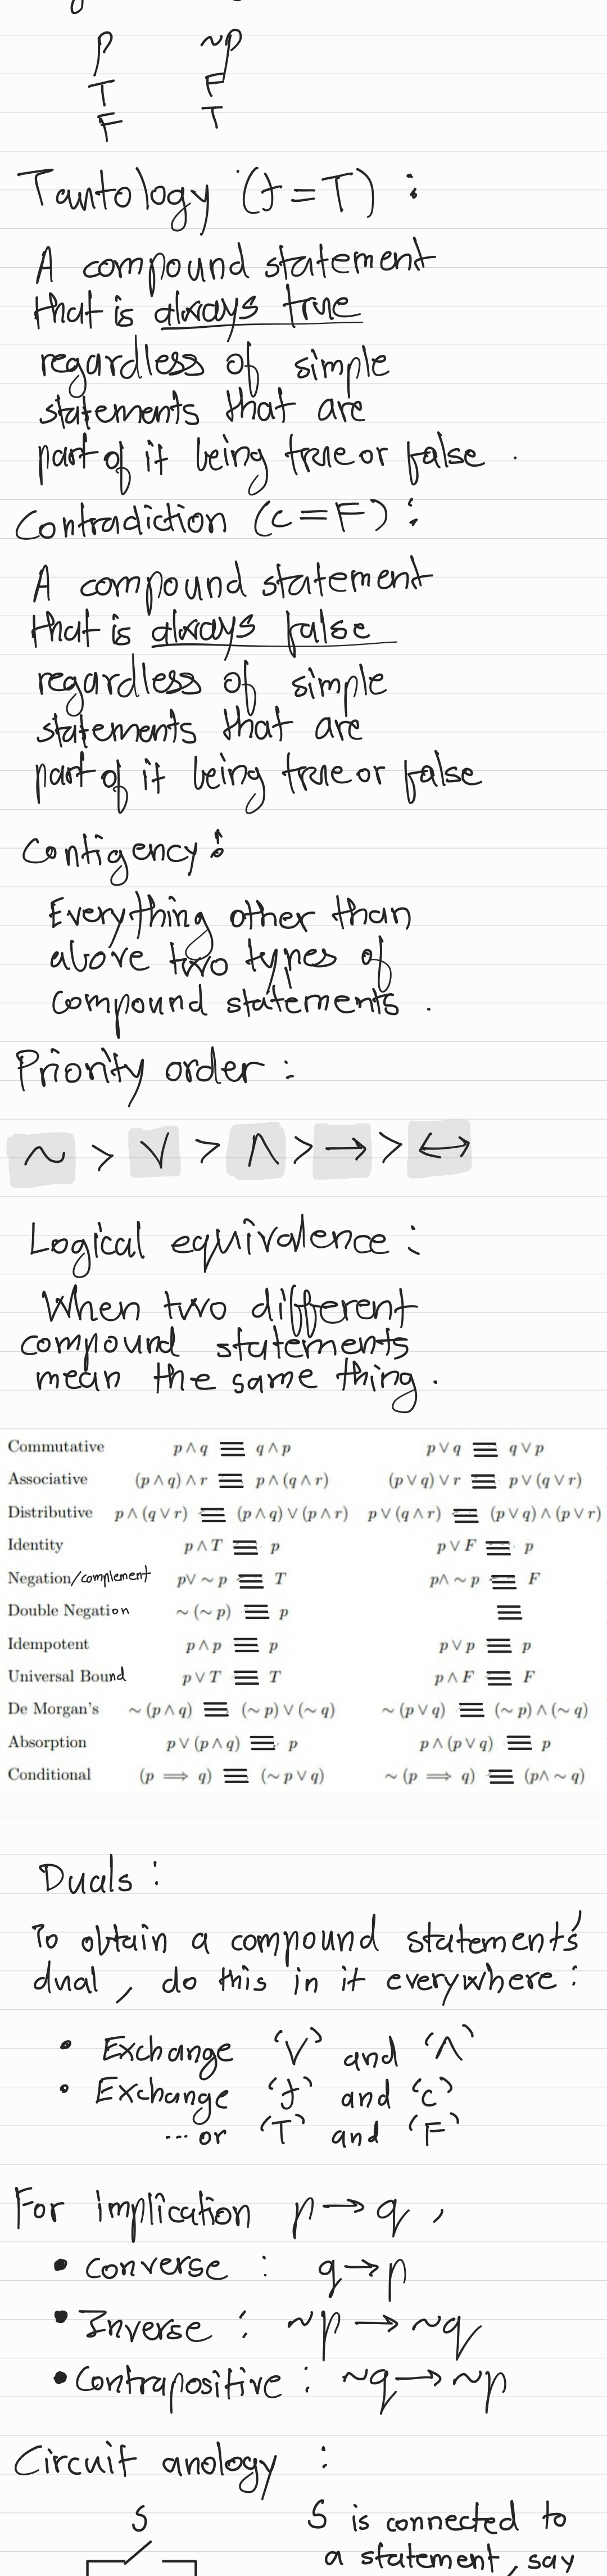 p ~p
T F
F T
Tautology (t=T) :
A compound statement
that is always true
regardless of simple
statements that are
part of it being true or false .
Contradiction (c=F) :
A compound statement
that is always false
regardless of simple
statements that are
part of it being true or false
Contigency :
Everything other than
above two types of
compound statements .
Priority order :
~ > ∨ > ∧ > → > ↔
Logical equivalence :
When two different
compound statements
mean the same thing .
Commutative p ∧ q ≡ q ∧ p p ∨ q ≡ q ∨ p
Associative (p ∧ q) ∧ r ≡ p ∧ (q ∧ r) (p ∨ q) ∨ r ≡ p ∨ (q ∨ r)
Distributive p ∧ (q ∨ r) ≡ (p ∧ q) ∨ (p ∧ r) p ∨ (q ∧ r) ≡ (p ∨ q) ∧ (p ∨ r)
Identity p ∧ T ≡ p p ∨ F ≡ p
Negation/complement p∨ ~ p ≡ T p∧ ~ p ≡ F
Double Negation ~ (~ p) ≡ p ≡
Idempotent p ∧ p ≡ p p ∨ p ≡ p
Universal Bound p ∨ T ≡ T p ∧ F ≡ F
De Morgan's ~ (p ∧ q) ≡ (~ p) ∨ (~ q) ~ (p ∨ q) ≡ (~ p) ∧ (~ q)
Absorption p ∨ (p ∧ q) ≡ p p ∧ (p ∨ q) ≡ p
Conditional (p ⟹ q) ≡ (~ p ∨ q) ~ (p ⟹ q) ≡ (p∧ ~ q)
Duals :
To obtain a compound statements'
dual , do this in it everywhere :
• Exchange '∨' and '∧'
• Exchange 't' and 'c'
... or 'T' and 'F'
For implication p → q ,
• Converse : q → p
• Inverse : ~p → ~q
• Contrapositive : ~q → ~p
Circuit anology :
S S is connected to
a statement, say